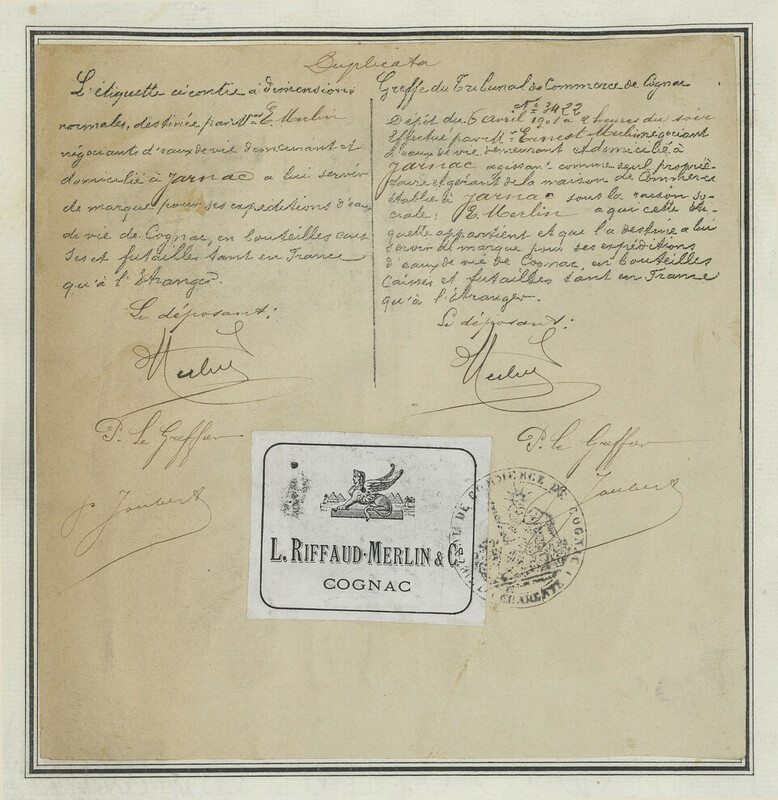 Duplicata
L'étiquette ci contre à dimensions
normales, destinée par Mr E. Merlin
négociants d'eaux de vie demeurant et
domicilié à Jarnac a lui servir
de marque pour ses expéditions d'eau
de vie de Cognac, en bouteilles cais
ses et futailles tant en France
qu'à l'Etranger.
Le déposant:
Merlin
P. Le Greffier
p Joubert
Greffe du Tribunal de Commerce de Cognac
No 3422
Dépôt du 6 avril 1901 à 2 heures du soir
Effectué par Mr Ernest Merlin négociant
d'eaux de vie demeurant et domicilié à
Jarnac agissant comme seul proprié-
taire et gérant de la maison de Commerce
établie à Jarnac sous la raison so-
ciale: E. Merlin a qui cette éti-
quette appartient et que l'a destine a lui
servir de marque pour ses expéditions
d'eaux de vie de Cognac, en bouteilles
Caisses et futailles tant en France
qu'à l'Etranger.
Le déposant:
Merlin
P. Le Greffier
Joubert
L. RIFFAUD-MERLIN & Co
COGNAC
DE COMMERCE DE COGNAC
CHARENTE